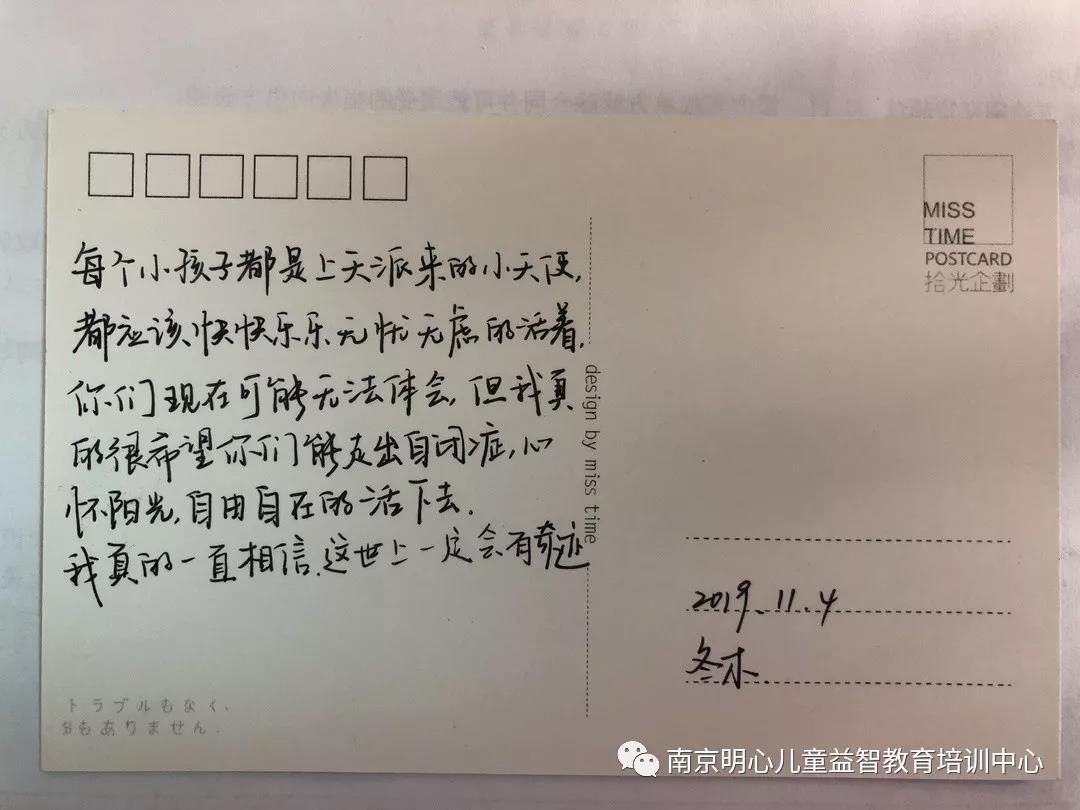 每个小孩子都是上天派来的小天使,
都应该快快乐乐无忧无虑的活着,
你们现在可能无法体会,但我真
的很希望你们能走出自闭症,心
怀阳光,自由自在的活下去.
我真的一直相信,这世上一定会有奇迹
トラブルもなく、
もありません.
design by miss time
MISS
TIME
POSTCARD
拾光企劃
2019.11.4
冬木.
南京明心儿童益智教育培训中心